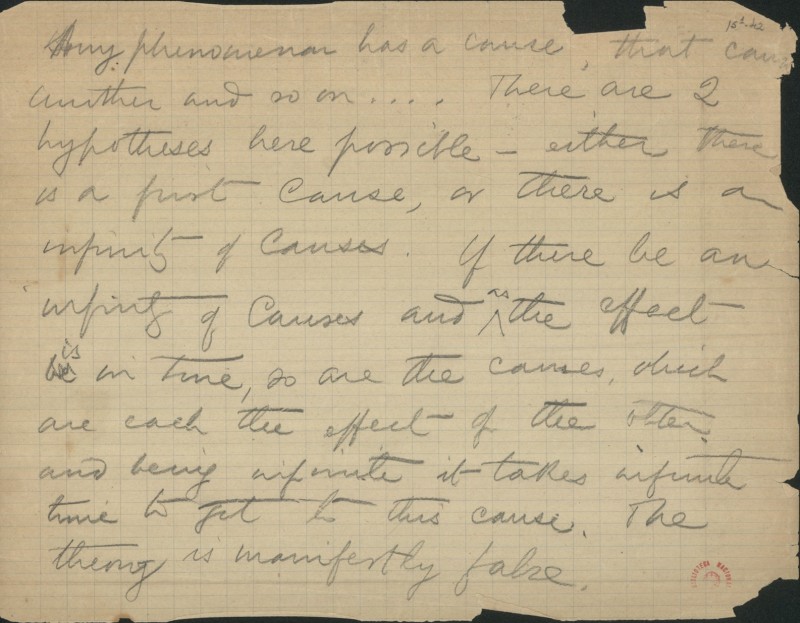 15¹-42
Any phenomenon has a cause, that cause
another and so on .... There are 2
hypotheses here possible — either there
is a first cause, or there is an
infinity of causes. If there be an
infinity of causes and as the effect
is in time, so are the causes, which
are each the effect of the other,
and being infinite it takes infinite
time to get to this cause. The
theory is manifestly false.
BIBLIOTECA NACIONAL